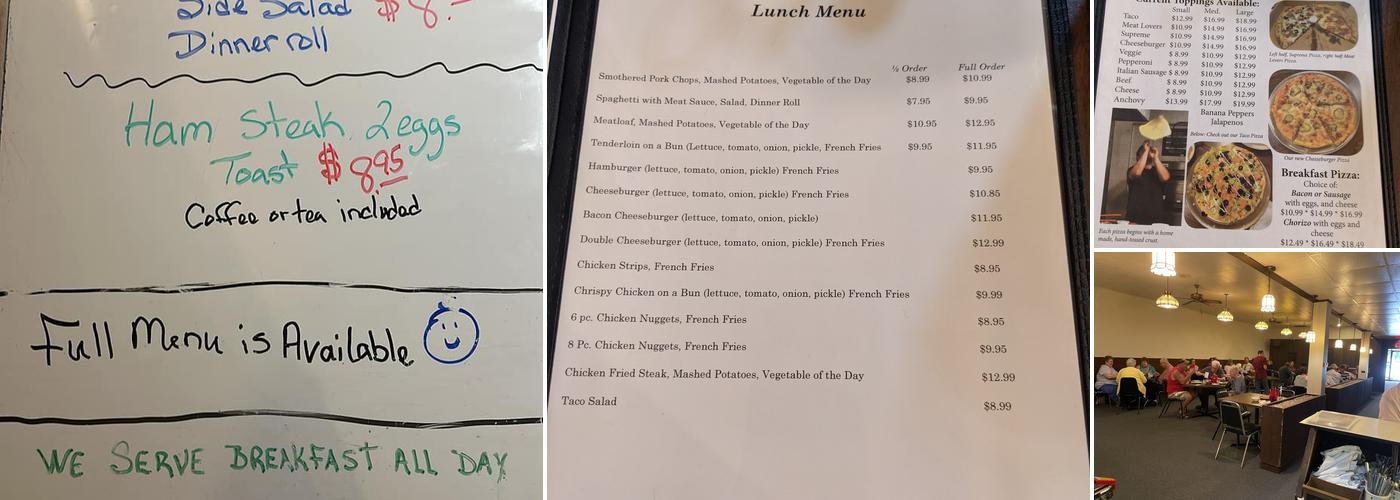 Side Salad $8.
Dinner roll
Ham Steak 2 eggs
Toast $8.95
Coffee or tea included
Full Menu is Available
WE SERVE BREAKFAST ALL DAY
Lunch Menu
½ Order Full Order
Smothered Pork Chops, Mashed Potatoes, Vegetable of the Day $8.99 $10.99
Spaghetti with Meat Sauce, Salad, Dinner Roll $7.95 $9.95
Meatloaf, Mashed Potatoes, Vegetable of the Day $10.95 $12.95
Tenderloin on a Bun (Lettuce, tomato, onion, pickle, French Fries $9.95 $11.95
Hamburger (lettuce, tomato, onion, pickle) French Fries $9.95
Cheeseburger (lettuce, tomato, onion, pickle) French Fries $10.85
Bacon Cheeseburger (lettuce, tomato, onion, pickle) $11.95
Double Cheeseburger (lettuce, tomato, onion, pickle) French Fries $12.99
Chicken Strips, French Fries $8.95
Chrispy Chicken on a Bun (lettuce, tomato, onion, pickle) French Fries $9.99
6 pc. Chicken Nuggets, French Fries $8.95
8 Pc. Chicken Nuggets, French Fries $9.95
Chicken Fried Steak, Mashed Potatoes, Vegetable of the Day $12.99
Taco Salad $8.99
Current Toppings Available:
Small Med. Large
Taco $12.99 $16.99 $18.99
Meat Lovers $10.99 $14.99 $16.99
Supreme $10.99 $14.99 $16.99
Cheeseburger $10.99 $14.99 $16.99
Veggie $ 8.99 $10.99 $12.99
Pepperoni $ 8.99 $10.99 $12.99
Italian Sausage $ 8.99 $10.99 $12.99
Beef $ 8.99 $10.99 $12.99
Cheese $ 8.99 $10.99 $12.99
Anchovy $13.99 $17.99 $19.99
Banana Peppers
Jalapenos
Below: Check out our Taco Pizza
Left half, Supreme Pizza, right half Meat
Lovers Pizza.
Our new Cheeseburger Pizza
Each pizza begins with a home
made, hand-tossed crust.
Breakfast Pizza:
Choice of:
Bacon or Sausage
with eggs, and cheese
$10.99 * $14.99 * $16.99
Chorizo with eggs and
cheese
$12.49 * $16.49 * $18.49